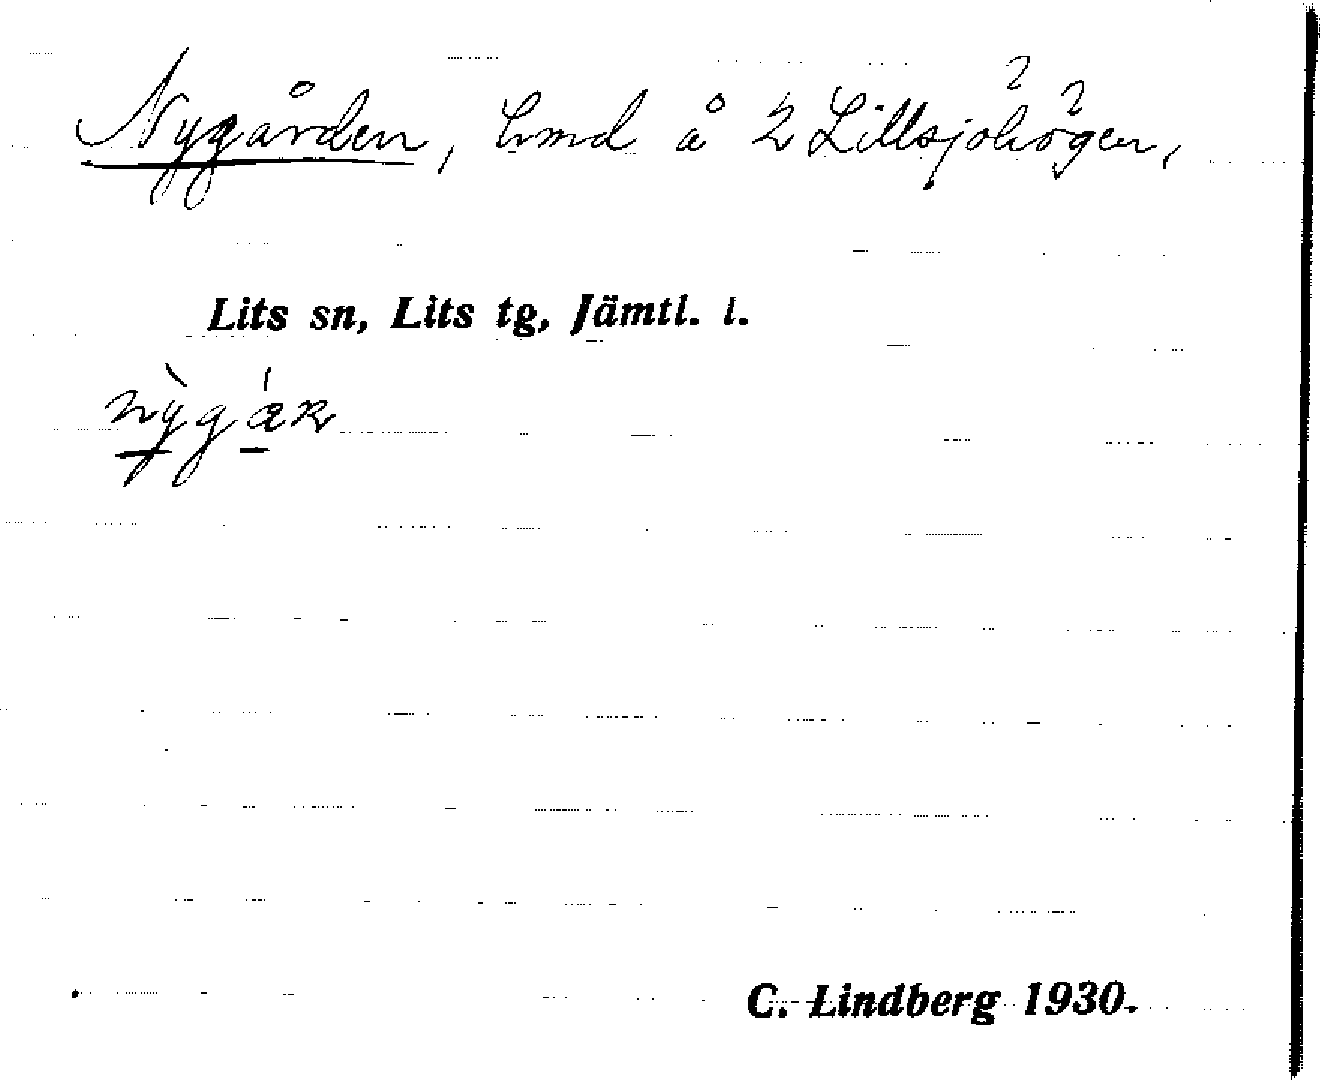 Nygården, hmd å 2 Lillsjöhögen,
Lits sn, Lits tg, Jämtl. l.
C. Lindberg 1930.